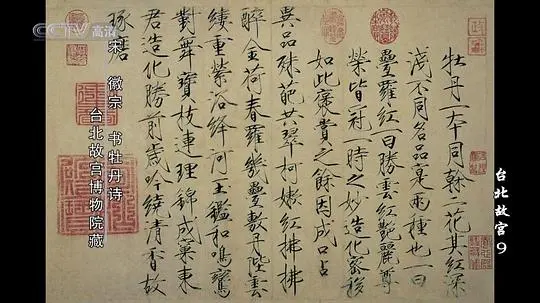 CCTV 高清
牡丹一本同榦二花其紅深
淺不同名品寔兩種也一曰
疊羅紅一曰勝雲紅艷麗尊
榮皆冠一時之妙造化密移
如此褒賞之餘因成口占
異品殊葩共翠柯嫩紅拂拂
醉金荷春羅幾疊敷丹陛雲
縷重縈浴絳河玉鑑和鳴鸞
對舞寶枝連理錦成窠東
君造化勝前歲吟繞清香故
琢磨
宋 徽宗 书牡丹诗
台北故宫博物院藏
台北故宫 9